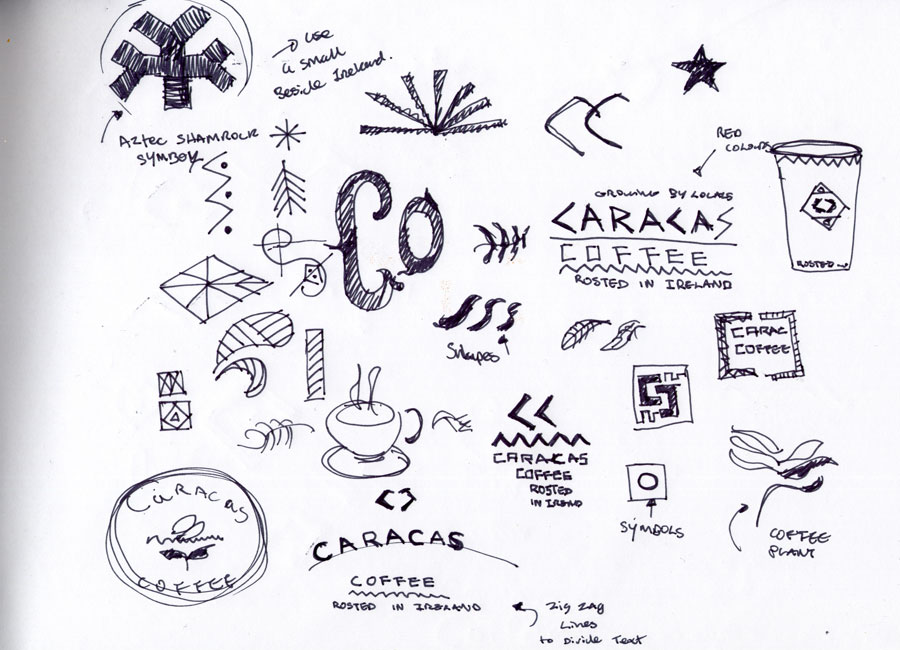 → USE
a small
Beside Ireland.
AZTEC SHAMROCK
SYMBOL
RED
COLOURS
Co
GROWING BY LOCALS
CARACAS
COFFEE
ROSTED IN IRELAND
ROSTED
Shapes
CARAC
COFFEE
CARACAS
COFFEE
ROSTED
IN IRELAND
SYMBOLS
COFFEE
PLANT
CARACAS
COFFEE
CARACAS
COFFEE
ROSTED IN IRELAND
Zig Zag
Lines
to Divide Text